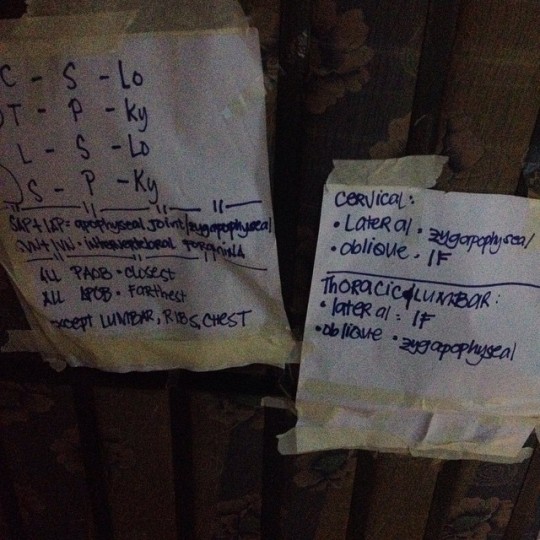 C - S - Lo
T - P - Ky
L - S - Lo
S - P - Ky
SAP + IAP = apophyseal joint/zygapophyseal
IVN + SVN = intervertebral foramina
ALL PAOB · closest
ALL APOB · farthest
except LUMBAR, RIBS, CHEST
CERVICAL:
· Lateral · zygapophyseal
· oblique · IF
THORACIC/LUMBAR:
· lateral : IF
· oblique · zygapophyseal